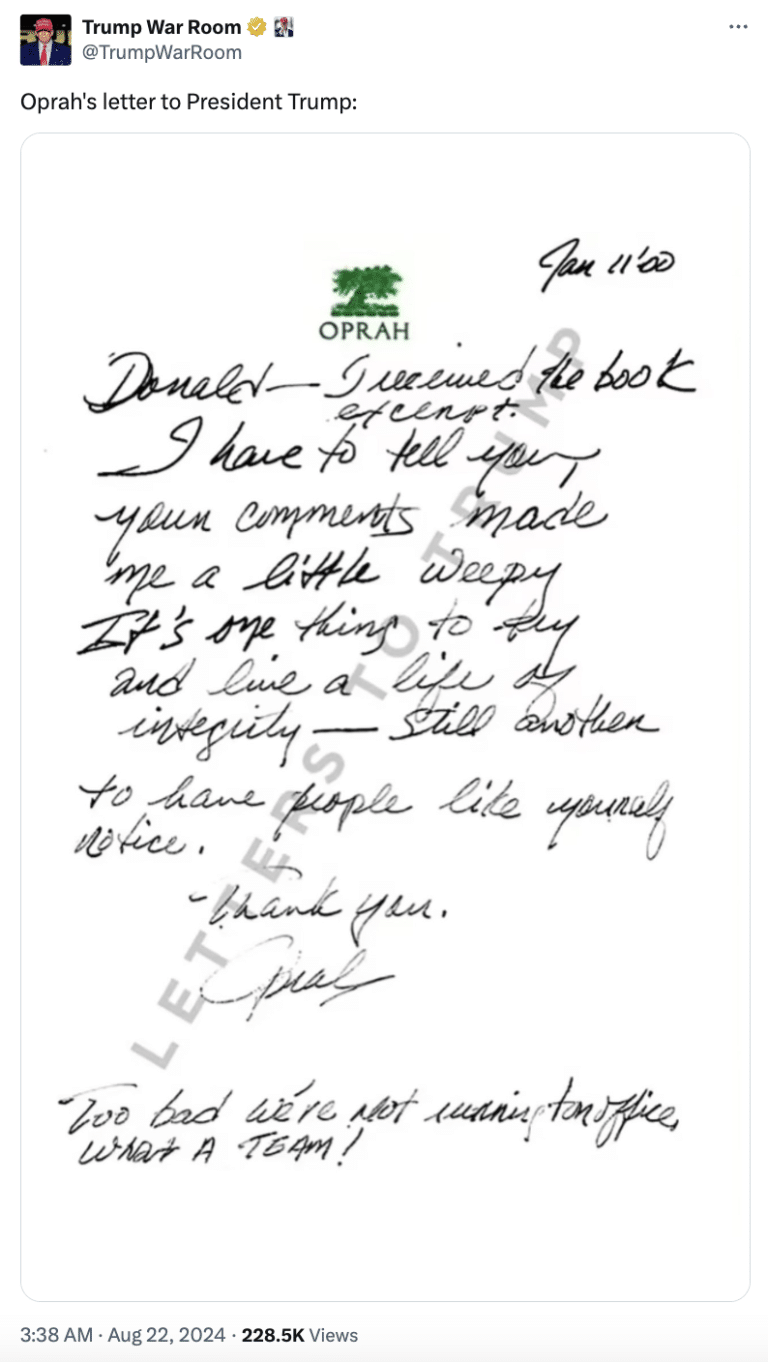 Trump War Room
@TrumpWarRoom
Oprah's letter to President Trump:
Jan 11'00
OPRAH
Donald— I received the book
excerpt.
I have to tell you,
your comments made
me a little weepy
It's one thing to try
and live a life of
integrity— still another
to have people like yourself
notice.
-Thank you.
Oprah
Too bad we're not running for office,
WHAT A TEAM!
LETTERS TO TRUMP
3:38 AM · Aug 22, 2024 · 228.5K Views